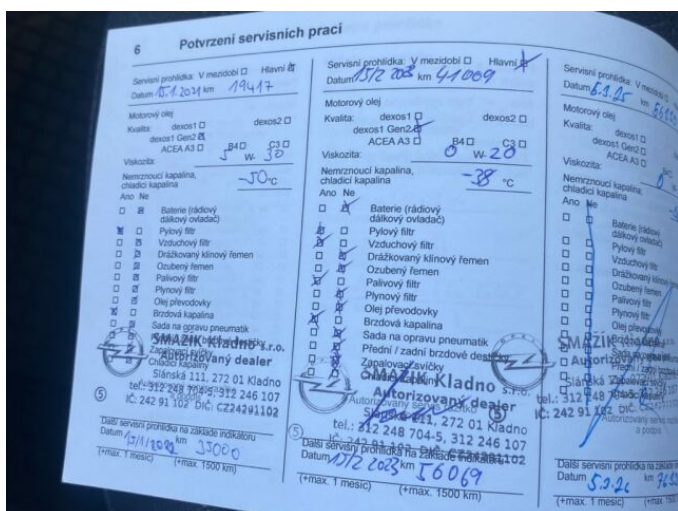 6 Potvrzení servisních prací
Servisní prohlídka: V mezidobí Hlavní
Datum 15.1.2021 km 19417
Motorový olej
Kvalita: dexos1 dexos2
dexos1 Gen2
ACEA A3 B4 C3
Viskozita: 5 W- 30
Nemrznoucí kapalina,
chladicí kapalina -50 °C
Ano Ne
Baterie (rádiový
dálkový ovladač)
Pylový filtr
Vzduchový filtr
Drážkovaný klínový řemen
Ozubený řemen
Palivový filtr
Plynový filtr
Olej převodovky
Brzdová kapalina
Sada na opravu pneumatik
SMAŽÍK Kladno s.r.o.
Zapalovací svíčky
Autorizovaný dealer
Chladicí kapaliny
Slánská 111, 272 01 Kladno
tel.: 312 248 704-5, 312 246 107
IČ: 242 91 102 DIČ: CZ24291102
5
Další servisní prohlídka na základě indikátoru
Datum 15/1/2022 km 35000
(+max. 1 měsíc) (+max. 1500 km)
Servisní prohlídka: V mezidobí Hlavní
Datum 15/2 2023 km 41009
Motorový olej
Kvalita: dexos1 dexos2
dexos1 Gen2
ACEA A3 B4 C3
Viskozita: 0 W- 20
Nemrznoucí kapalina,
chladicí kapalina -38 °C
Ano Ne
Baterie (rádiový
dálkový ovladač)
Pylový filtr
Vzduchový filtr
Drážkovaný klínový řemen
Ozubený řemen
Palivový filtr
Plynový filtr
Olej převodovky
Brzdová kapalina
Sada na opravu pneumatik
Přední / zadní brzdové destičky
Zapalovací svíčky
SMAŽÍK Kladno s.r.o.
Chladicí kapaliny
Autorizovaný dealer
Slánská 111, 272 01 Kladno
tel.: 312 248 704-5, 312 246 107
IČ: 242 91 102 DIČ: CZ24291102
5
Další servisní prohlídka na základě indikátoru
Datum 15/2 2023 km 56069
(+max. 1 měsíc) (+max. 1500 km)
Servisní prohlídka: V mezidobí
Datum 5.2.25 km
Motorový olej
Kvalita: dexos1
dexos1 Gen2
ACEA A3
Viskozita: 0
Nemrznoucí kapalina,
chladicí kapalina
Ano Ne
Baterie (rádiový
dálkový ovladač)
Pylový filtr
Vzduchový filtr
Drážkovaný klínový
Ozubený řemen
Palivový filtr
Plynový filtr
Olej převodovky
Brzdová kapalina
SMAŽÍK
Autorizovaný
Slánská
tel.: 312 248
IČ: 242 91 102 DIČ:
Další servisní prohlídka na základě
Datum 5.2.26 km
(+max. 1 měsíc) (+max. 1500